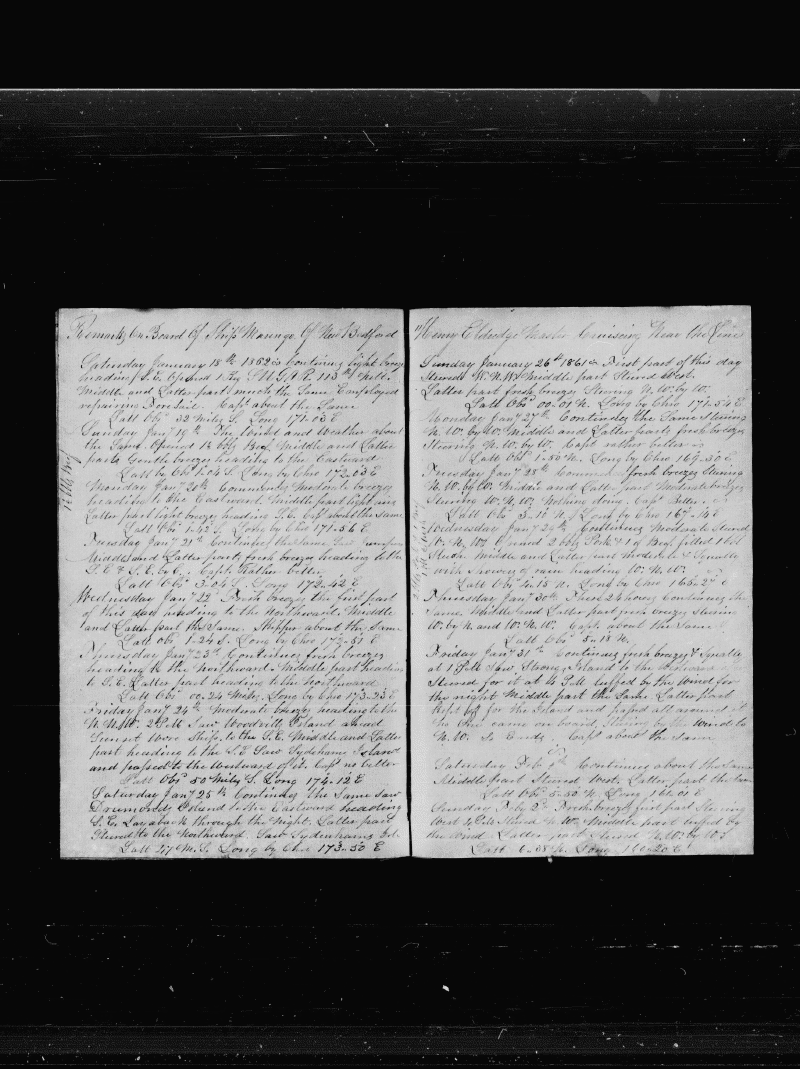 Remarks On Board Of Ship Marengo Of New Bedford
Saturday January 18th 1862 Continues light breezes
heading S.E. Opened
Middle and Latter part much the Same Employed
repairing Foresail. Capt about the Same
Latt Obs 32 Miles S. Long 171-03 E
Sunday Jany 19th The Winds and Weather about
the Same Opened Beef Middle and Latter
parts Gentle breezes heading to the Eastward
Latt by Obs 1-04 S. Long by Chro 172-03 E
Monday Jany 20th Commences Moderate breezes
heading to the Eastward. Middle part light airs
Latter part light breezes heading S.E. Capt about the Same
Latt Obs 1-42 S. Long by Chro 171-56 E
Tuesday Jany 21st Continues the Same
Middle and Latter parts fresh breezes heading to the
S.E. & S.E. by E. Capt. Rather better
Latt Obs 3-04 S. Long 172-42 E
Wednesday Jany 22 Fresh breezes the first part
of this day heading to the Northward. Middle
and Latter part the Same. Skipper about the Same
Latt Obs 1-24 S. Long by Chro 172-51 E
Thursday Jany 23rd Continues fresh breezes
heading to the Northward. Middle part heading
to S.E. Latter part heading to the Northward
Latt Obs 00-24 Miles Long by Chro 173-23 E
Friday Jany 24th Moderate breezes heading to the
N.N.W. 2 P.M. Saw Woodvill Island ahead
Sunset Wore Ship to the S.E. Middle and Latter
part heading to the S.E Saw Sydenhams Island
and passed to the Westward of it. Capt no better
Latt Obs 50 Miles S. Long 174-12 E
Saturday Jany 25th Continues the Same Saw
Drumonds Island to the Eastward heading
S.E. Layaback through the Night. Latter part
Steered to the Northward. Saw Sydenhams Isl.
Latt 47 M. S. Long by Chro 173-50 E
Henry Eldredge Master Cruising Near the Line
Sunday January 26th 1861 First part of this day
Steered W.N.W. Middle part Steered West.
Latter part fresh breezes Steering N.W. by W.
Latt Obs 00-01 N. Long by Chro 171-54 E
Monday Jany 27th Continues the Same Steering
N.W. by W. Middle and Latter parts fresh breezes
Steering N.W. by W. Capt rather better
Latt Obs 1-50 N. Long by Chro 169-50 E
Tuesday Jany 28th fresh breezes Steering
N.W. by W. Middle and Latter part Moderate breezes
Steering W.N.W. Nothing doing. Capt Better
Latt Obs 3-11 N. Long by Chro 167-14 E
Wednesday Jany 29th Continues Moderate Steered
Middle and Latter part Moderate & Squally
with showers of rain heading W.N.W.
Thursday Jany 30th These 24 hours Continues the
Same. Middle and Latter part fresh breezes Steering
W. by N. and W.N.W. Capt. about the Same
Latt Obs 5-18 N.
Friday Jany 31st Continues fresh breezes & Squally
at 1 P.M. Saw Strongs Island to the Westward
Steered for it at 4 P.M. luffed by the Wind for
the night Middle part the Same. Latter part
Kept off for the Island and passed all around it
came on board, Steering by the Wind to
N.W. So Ends. Capt about the Same
Saturday Feb 1st Continues about the Same
Middle part Steered West. Latter part the Same
Latt Obs 5-50 N. Long 161-01 E
Sunday Feby 2d Fresh breezes first part Steering
West 4 P.M. Steered N.W. Middle part luffed by
the Wind Latter part Steered N.W. by W.